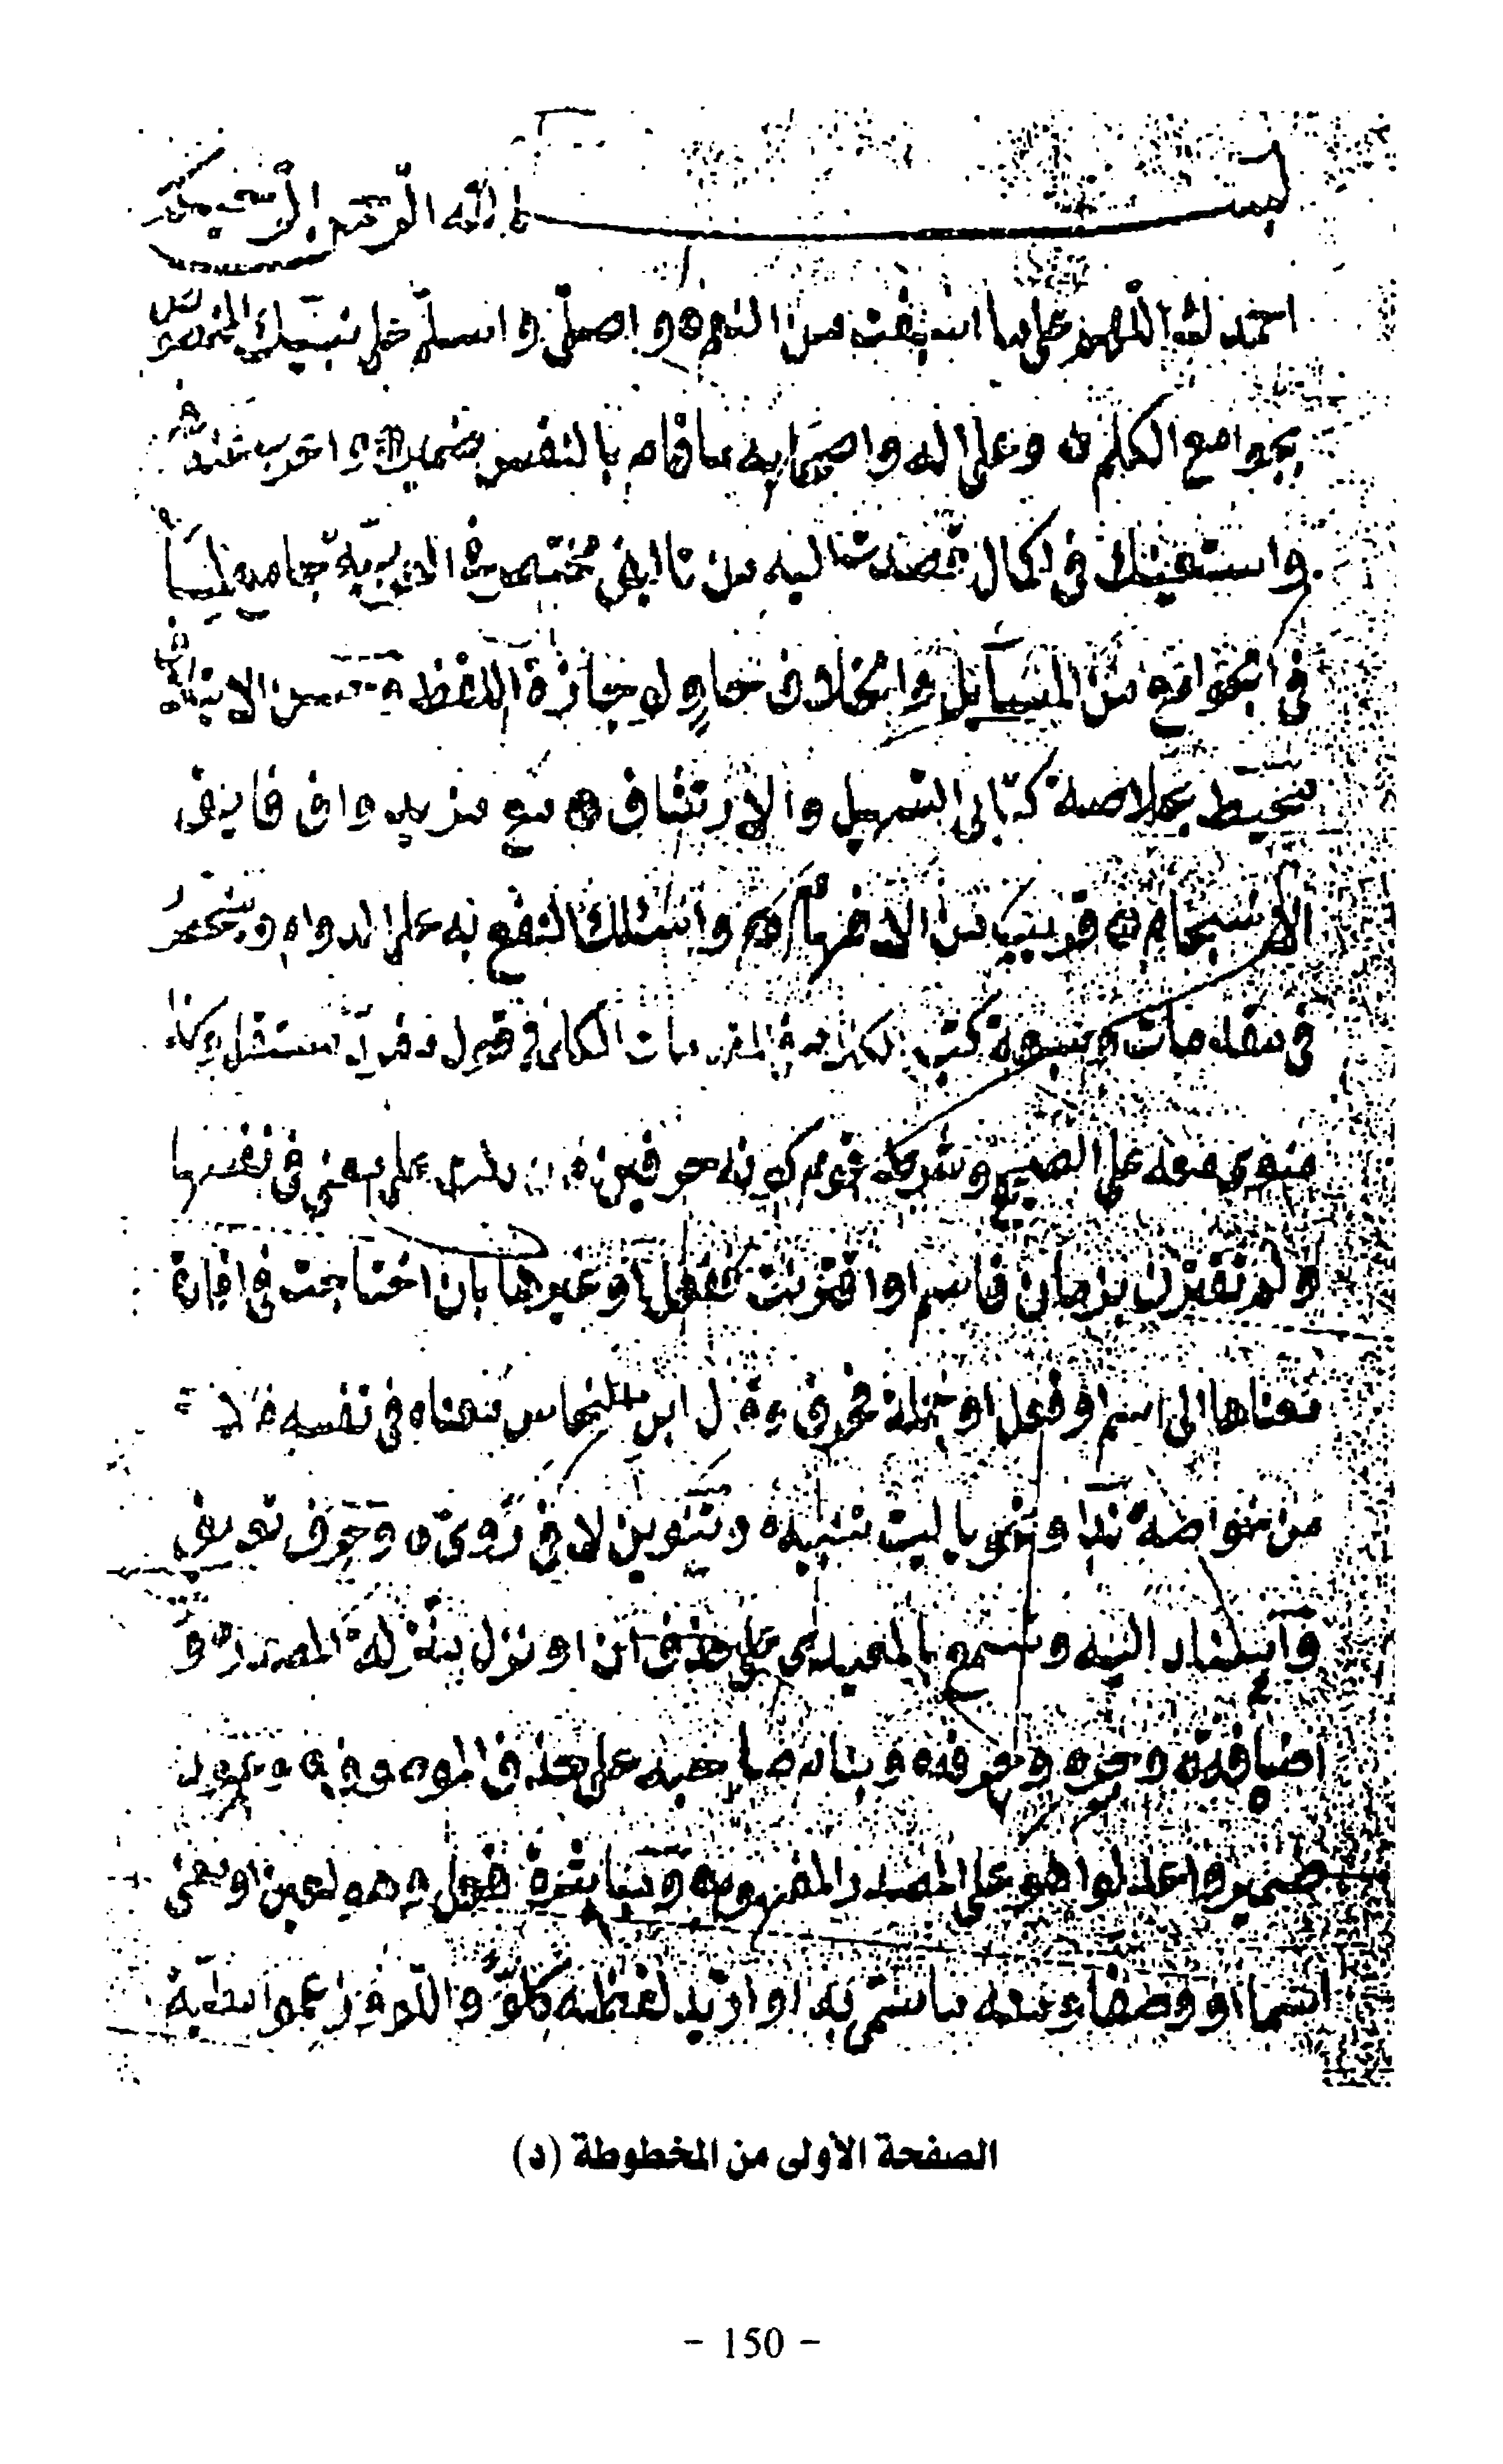 بسم الله الرحمن الرحيم
احمدك اللهم على ما اسبغت من النعم واصلي واسلم على نبيك المخصوص
بجوامع الكلم وعلى اله واصحابه ما قام بالنفس ضمير واعرب عنه
واستعينك في اكمال ما قصدت اليه من تاليف مختصر في العربية جامع لما
في الجوامع من المسائل والخلاف حاو لوجازة اللفظ وحسن الايتلاف
محيط بخلاصة كتابي التسهيل والارتشاف مع مزيد واف فايق
الانسجام قريب من الافهام واسئلك النفع به على الدوام وينحصر
في مقدمات وسبعة كتب المقدمات الكلمة قول مفرد مستقل وكذا
منوي معه على الصحيح وشرط قوم كونه حرفين فان دلت على معنى في نفسها
ولم تقترن بزمان فاسم او اقترنت ففعل او غيرها بان احتاجت في افادة
معناها الى اسم او فعل او جملة فحرف وقال ابن النحاس معناه في نفسه
من خواصه نداء ونحو يا ليت تنبيه وتنوين لا في روي وحرف تعريف
واسناد اليه وتسمع بالمعيدي على حذف ان او نزل منزلة المصدر و
اضافة وجره وحرفه وبنام صاحبه على حذف الموصوف وعود
ضمير واعدلوا هو على المصدر المفهوم ومباشرة فعل وهو لعين او معنى
اسما او وصفا ومنه ما سمي به او اريد لفظه كلو واللام زعموا مطية
الصفحة الأولى من المخطوطة (د)
- 150 -